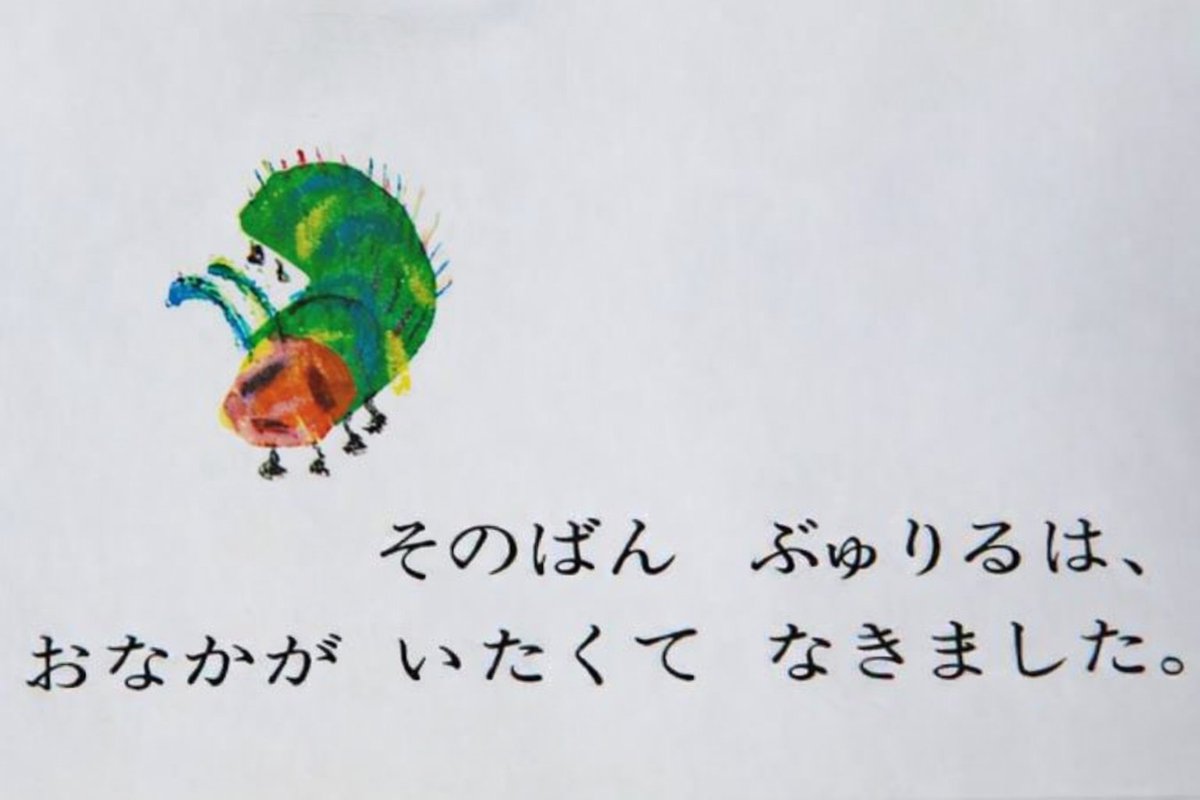 そのばん　ぶゅりるは、
おなかが　いたくて　なきました。